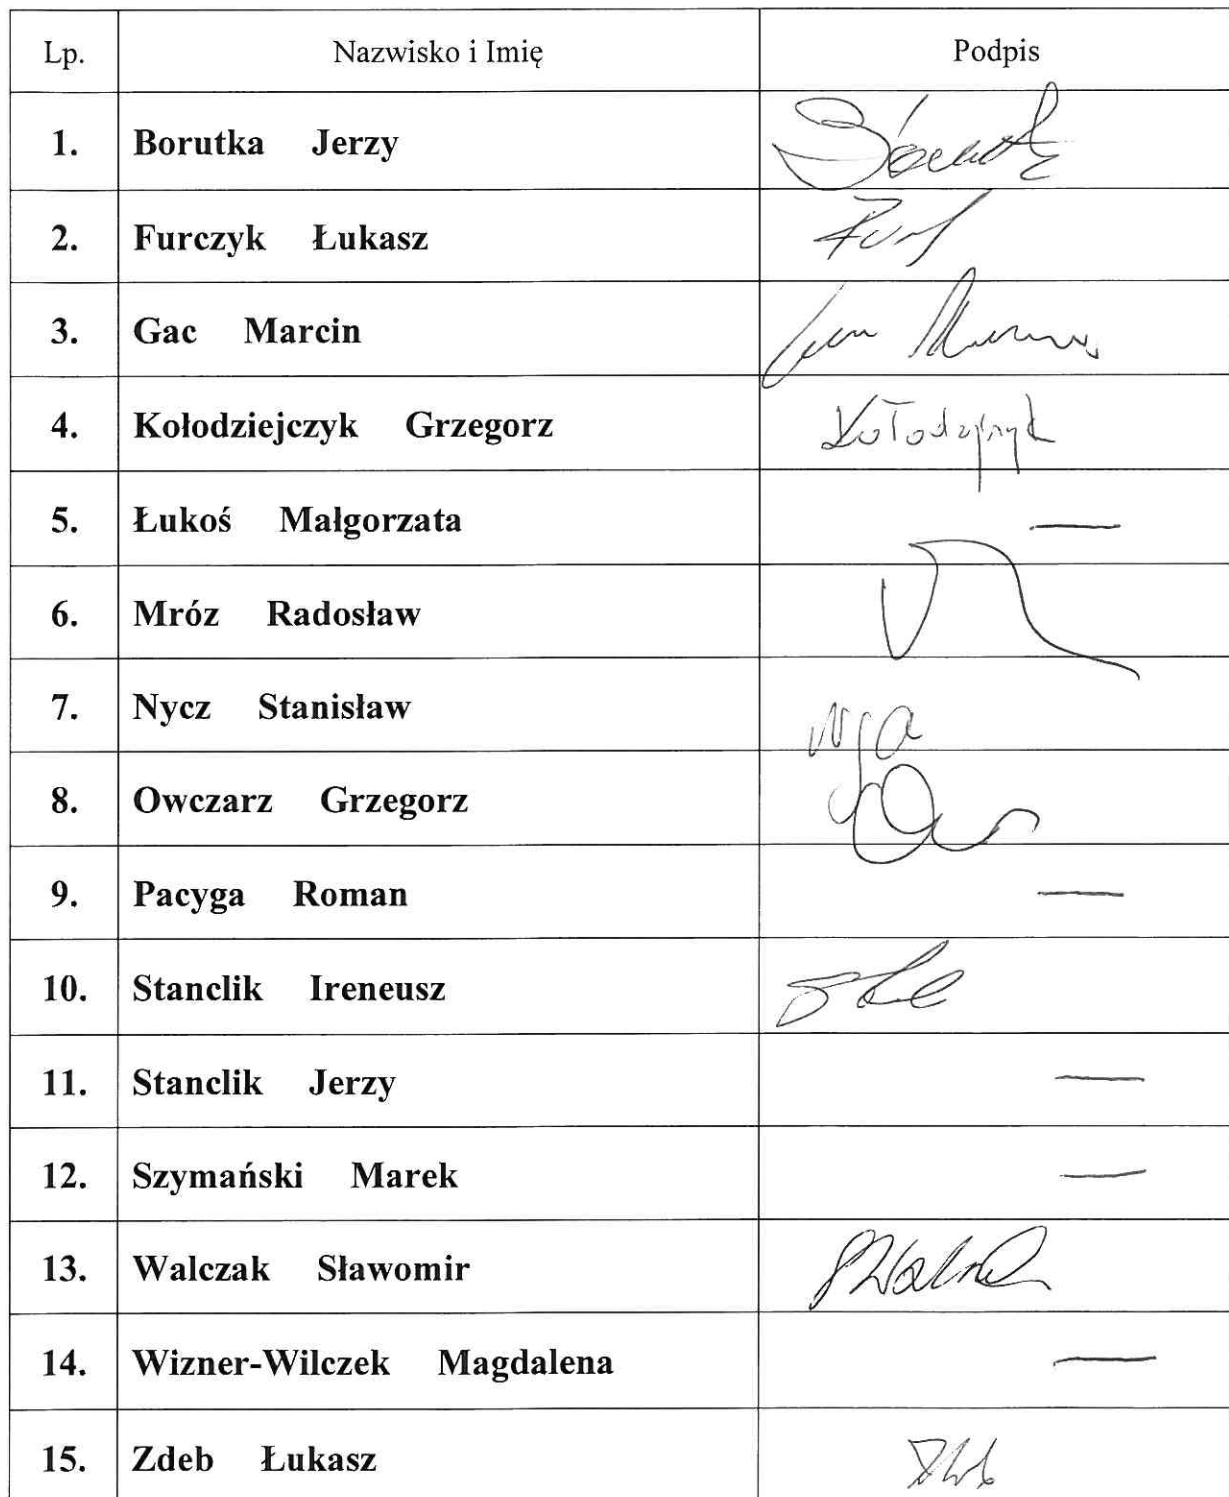 Lp. Nazwisko i Imię Podpis
1. Borutka Jerzy
2. Furczyk Łukasz
3. Gac Marcin
4. Kołodziejczyk Grzegorz
5. Łukoś Małgorzata —
6. Mróz Radosław
7. Nycz Stanisław
8. Owczarz Grzegorz
9. Pacyga Roman —
10. Stanclik Ireneusz
11. Stanclik Jerzy —
12. Szymański Marek —
13. Walczak Sławomir
14. Wizner-Wilczek Magdalena —
15. Zdeb Łukasz